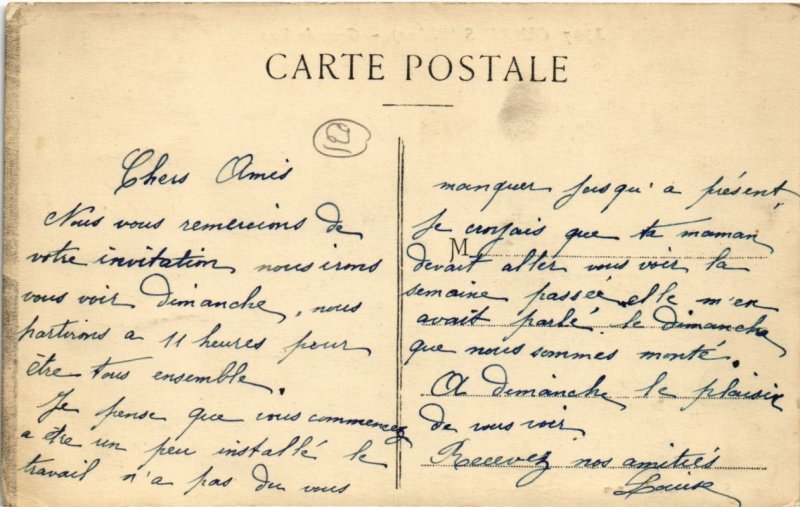 CARTE POSTALE
Chers Amis
Nous vous remercions de
votre invitation nous irons
vous voir Dimanche, nous
partirons a 11 heures pour
être tous ensemble.
Je pense que vous commencez
a être un peu installé le
travail n'a pas du vous
manquer jusqu'a présent,
Je croyais que ta maman
M
devait aller vous voir la
semaine passée elle m'en
avait parlé le dimanche
que nous sommes monté.
A dimanche le plaisir
de vous voir
Recevez nos amitiés
Louise